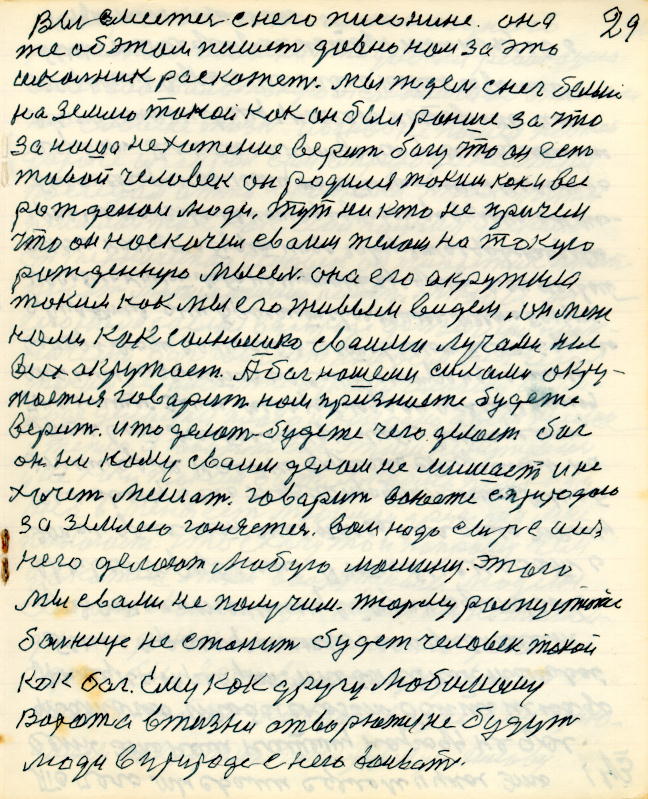 Вы смеетея с него писонине. она 29
же об этом пишит довно ном за это
школник роскожет. мы ждем снег белый
на землю токой кок он был роньше за что
за ноша нехотение верит богу что он есть
живой человек он родился токим как и вси
рожденои люди. тут ни кто не причем
что он носкочил сваим телом на токую
рожденную мысел. она его акружила
токим кок мы его живым видем. он меж
номи кок солнышко сваими лучами нас
всех акружает. А бог ношеми силами окру-
жоется говорит ном признаете будете
верит. и то делот будете чего делает бог
он ни кому сваим делом не мишает и не
хочет мешат. говорит воюете с природою
за землею гоняетея. вам нодо сырье из
него делают любую мошину. этого
мы с вами не получим. тюрму роспустит
болнице не станит будет человек такой
кок бог. ему кок другу любимому
ворота в жизни отворят и не будут
люди в природе с него воеват.